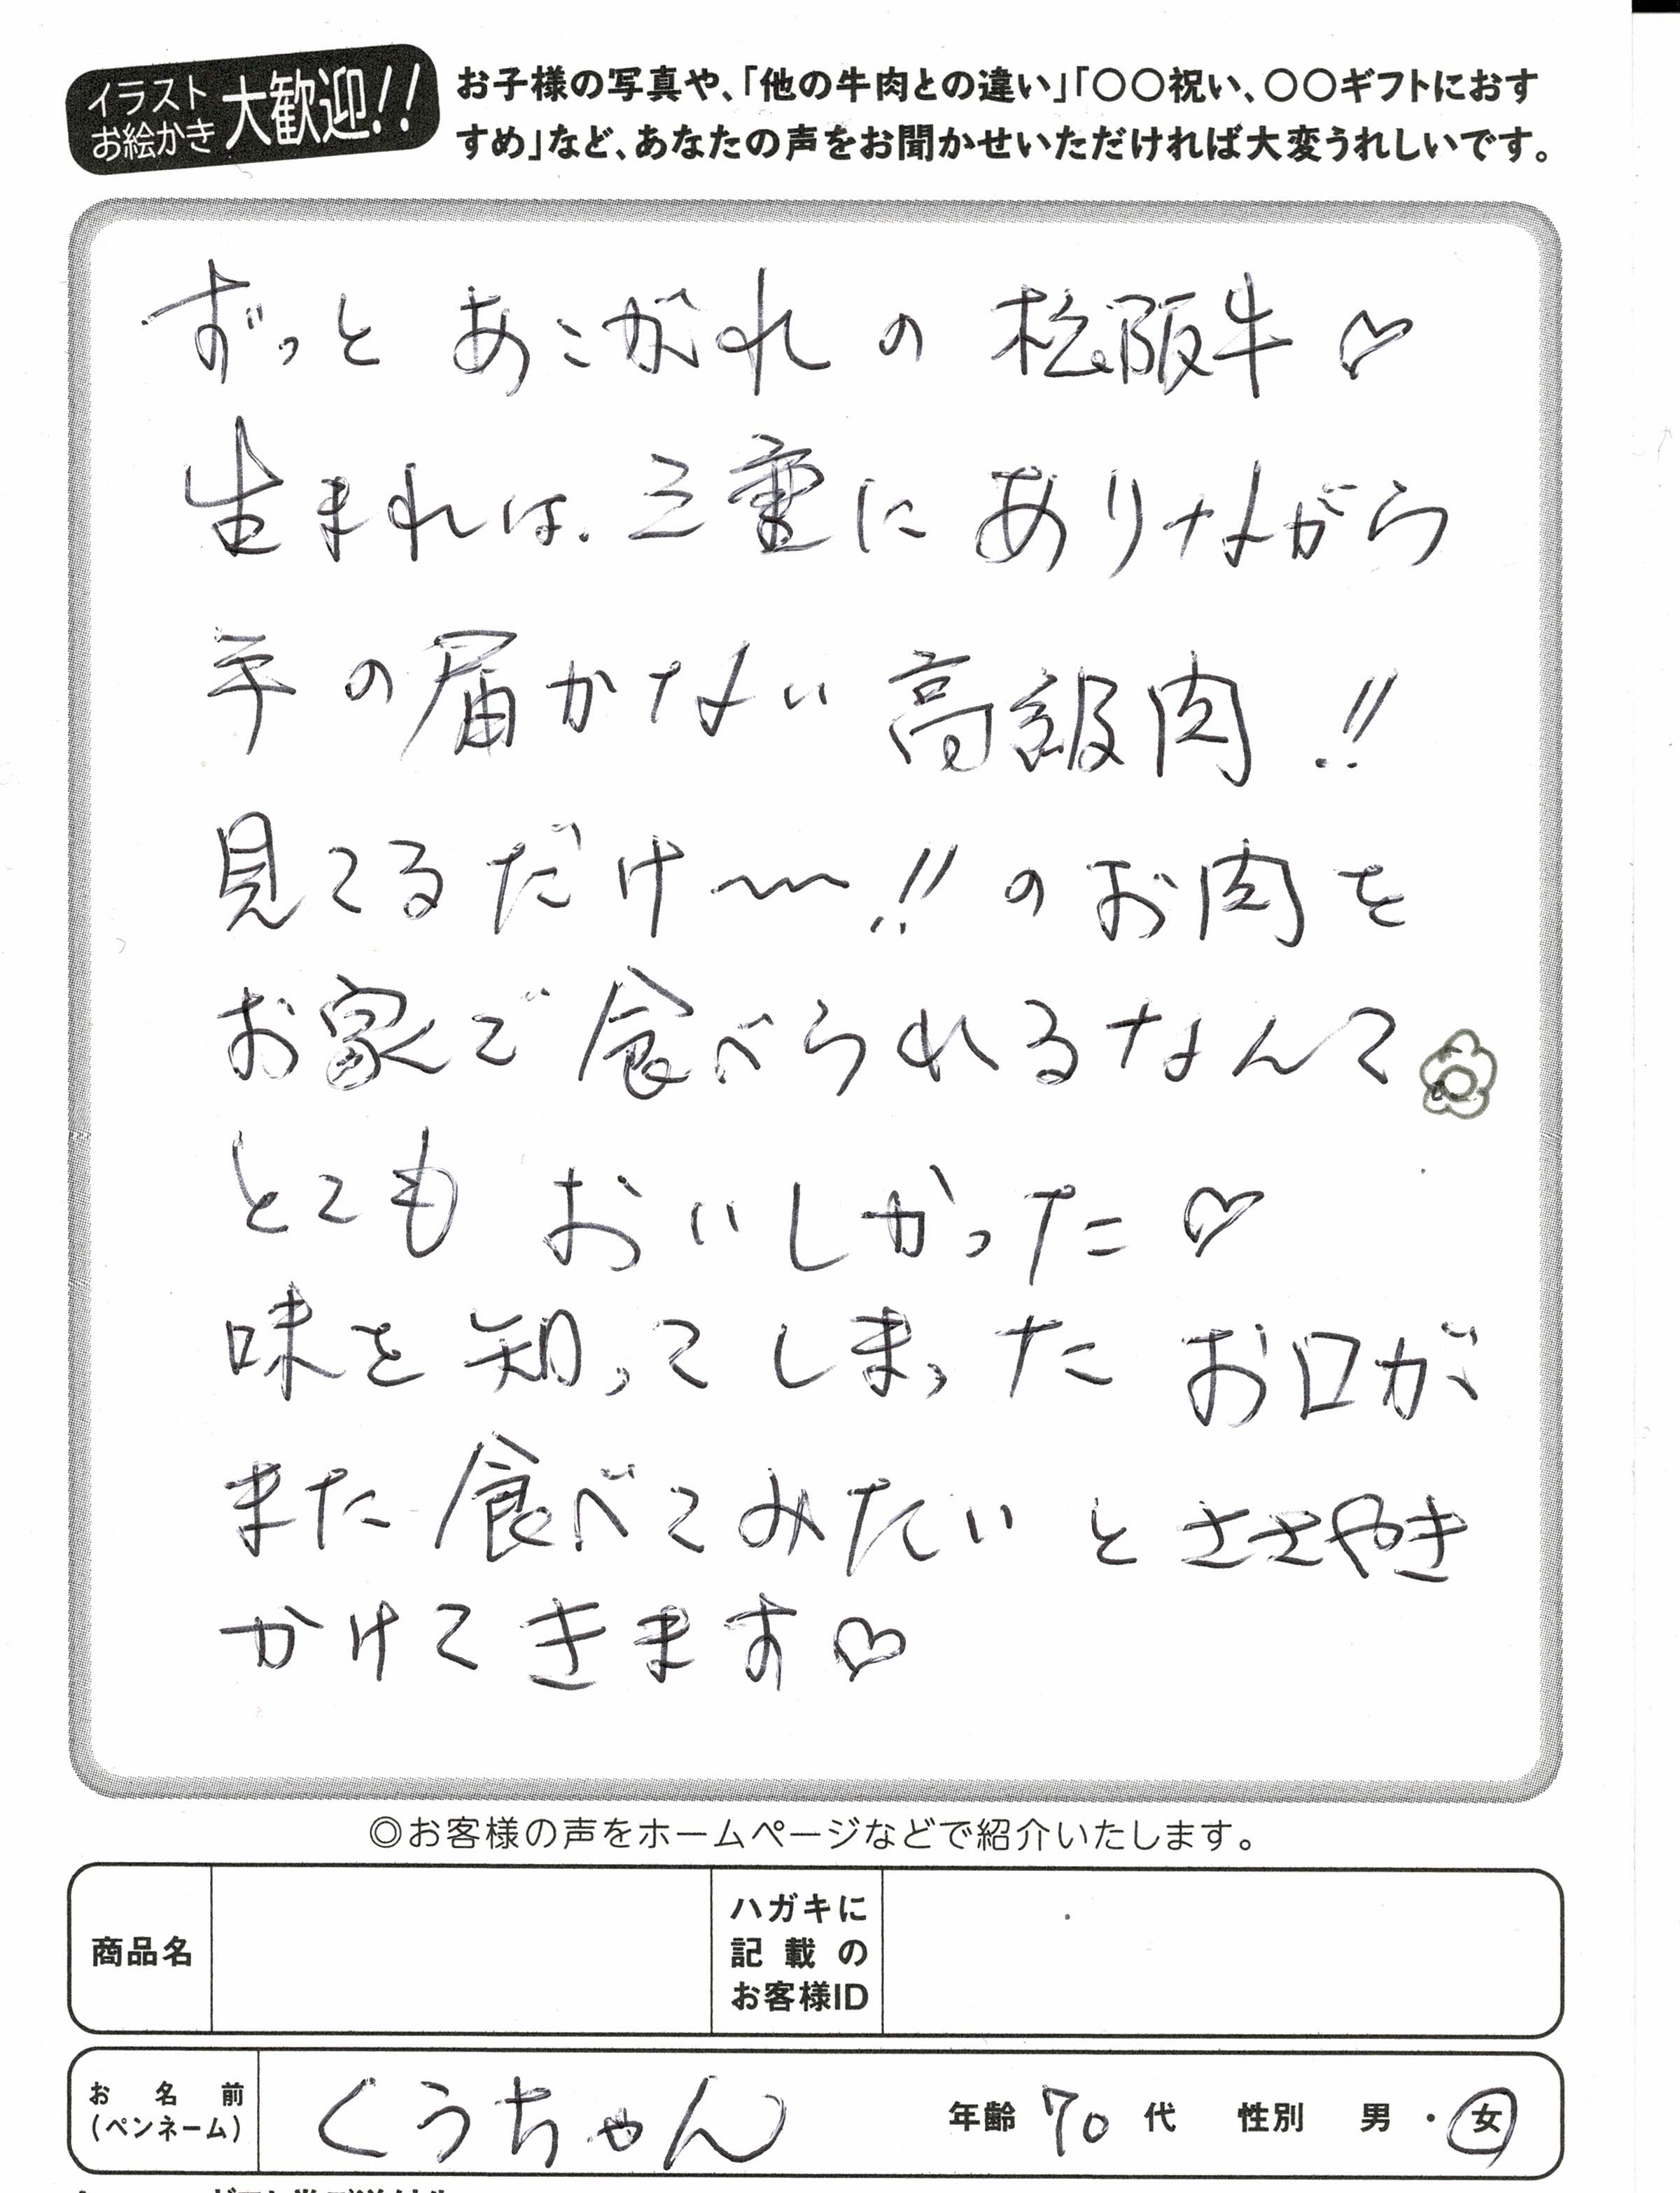 イラスト
お絵かき
大歓迎!!
お子様の写真や、「他の牛肉との違い」「〇〇祝い、〇〇ギフトにおす
すめ」など、あなたの声をお聞かせいただければ大変うれしいです。
ずっと あこがれ の 松阪牛♡
生まれは、三重に ありながら
手の届かない 高級肉!!
見てるだけ〜!!のお肉を
お家で食べられるなんて
とても おいしかった♡
味を知ってしまった お口が、
また食べてみたい とささやき
かけてきます♡
◎お客様の声をホームページなどで紹介いたします。
商品名
ハガキに
記載の
お客様ID
お名前
(ペンネーム)
くうちゃん
年齢 70 代 性別 男・女